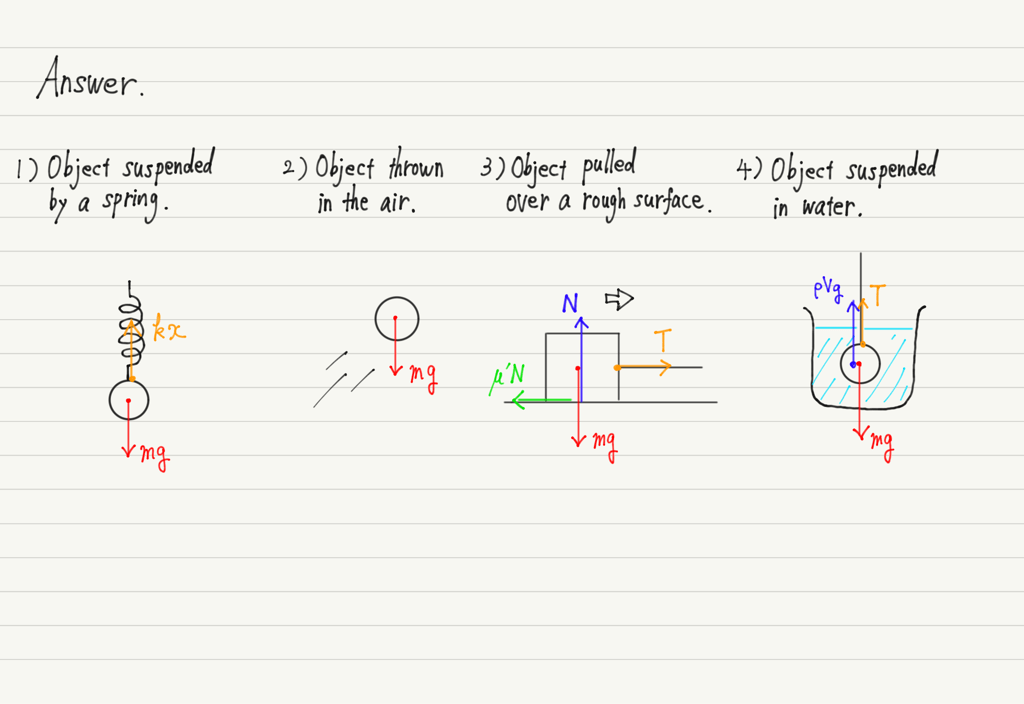 Answer.
1) Object suspended
by a spring.
2) Object thrown
in the air.
3) Object pulled
over a rough surface.
4) Object suspended
in water.
kx
mg
mg
N
T
μ'N
mg
ρVg
T
mg